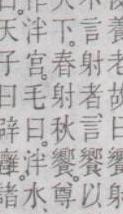 養老故曰饗射
言射者言饗以
下。春射秋饗尊
泮宮。毛曰。泮水、
天子曰辟廱諸